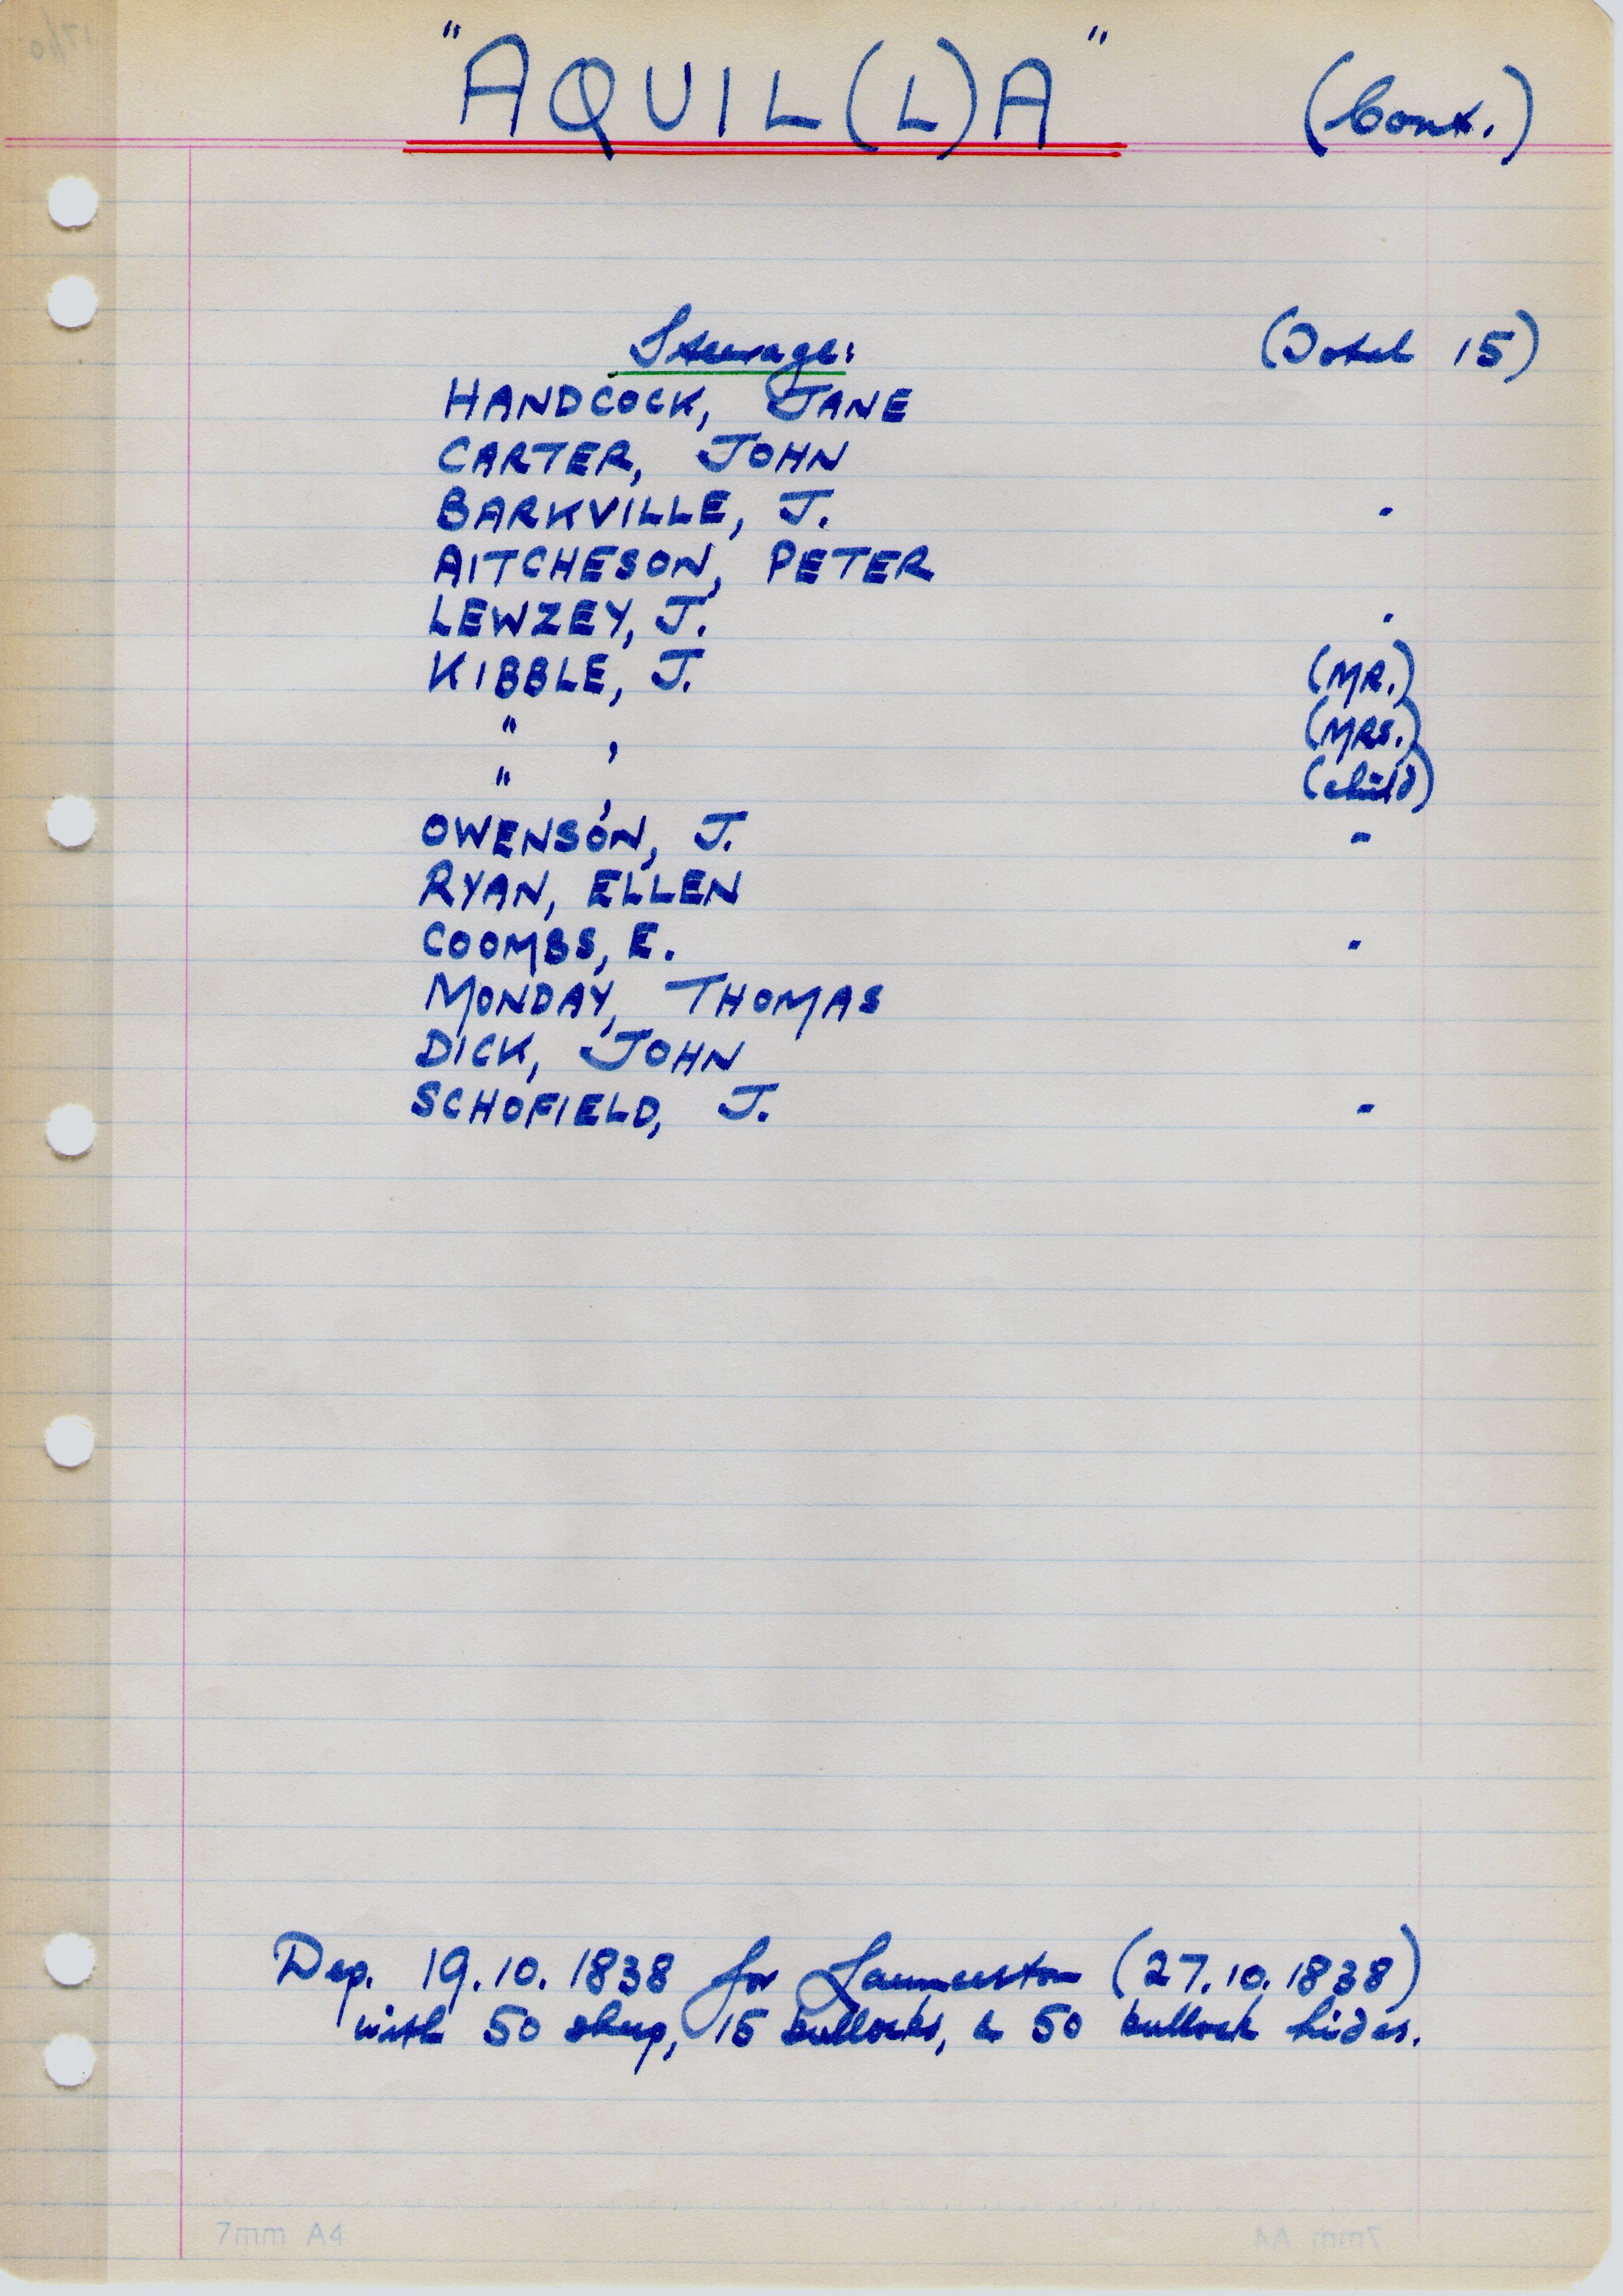 "AQUIL(L)A" (Cont.)
Steerage: (Total 15)
HANDCOCK, JANE
CARTER, JOHN
BARKVILLE, J. -
AITCHESON, PETER
LEWZEY, J. -
KIBBLE, J. (MR.)
" , (MRS.)
" , (child)
OWENSON, J. -
RYAN, ELLEN
COOMBS, E. -
MONDAY, THOMAS
DICK, JOHN
SCHOFIELD, J. -
Dep. 19.10.1838 for Launceston (27.10.1838)
with 50 sheep, 15 bullocks, & 50 bullock hides.
7mm A4